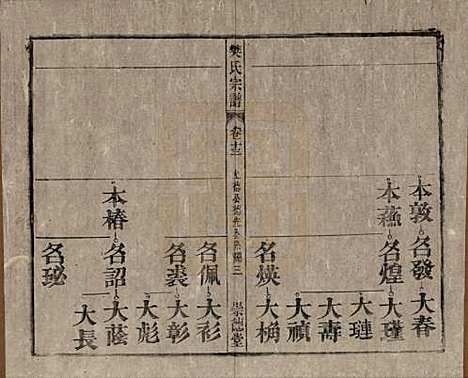 本敦 名發 大春
本蕪 名煌 大瑾
大璉
大壽
大禎
名煐 大楠
樊氏宗譜
卷十三
崇德堂
名佩 大衫
名裘 大彰
大彪
本椿 名韶 大蔭
大長
名珌